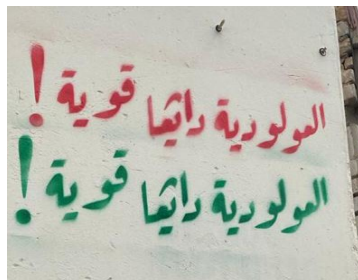 المولودية دائما قوية !
المولودية دائما قوية !